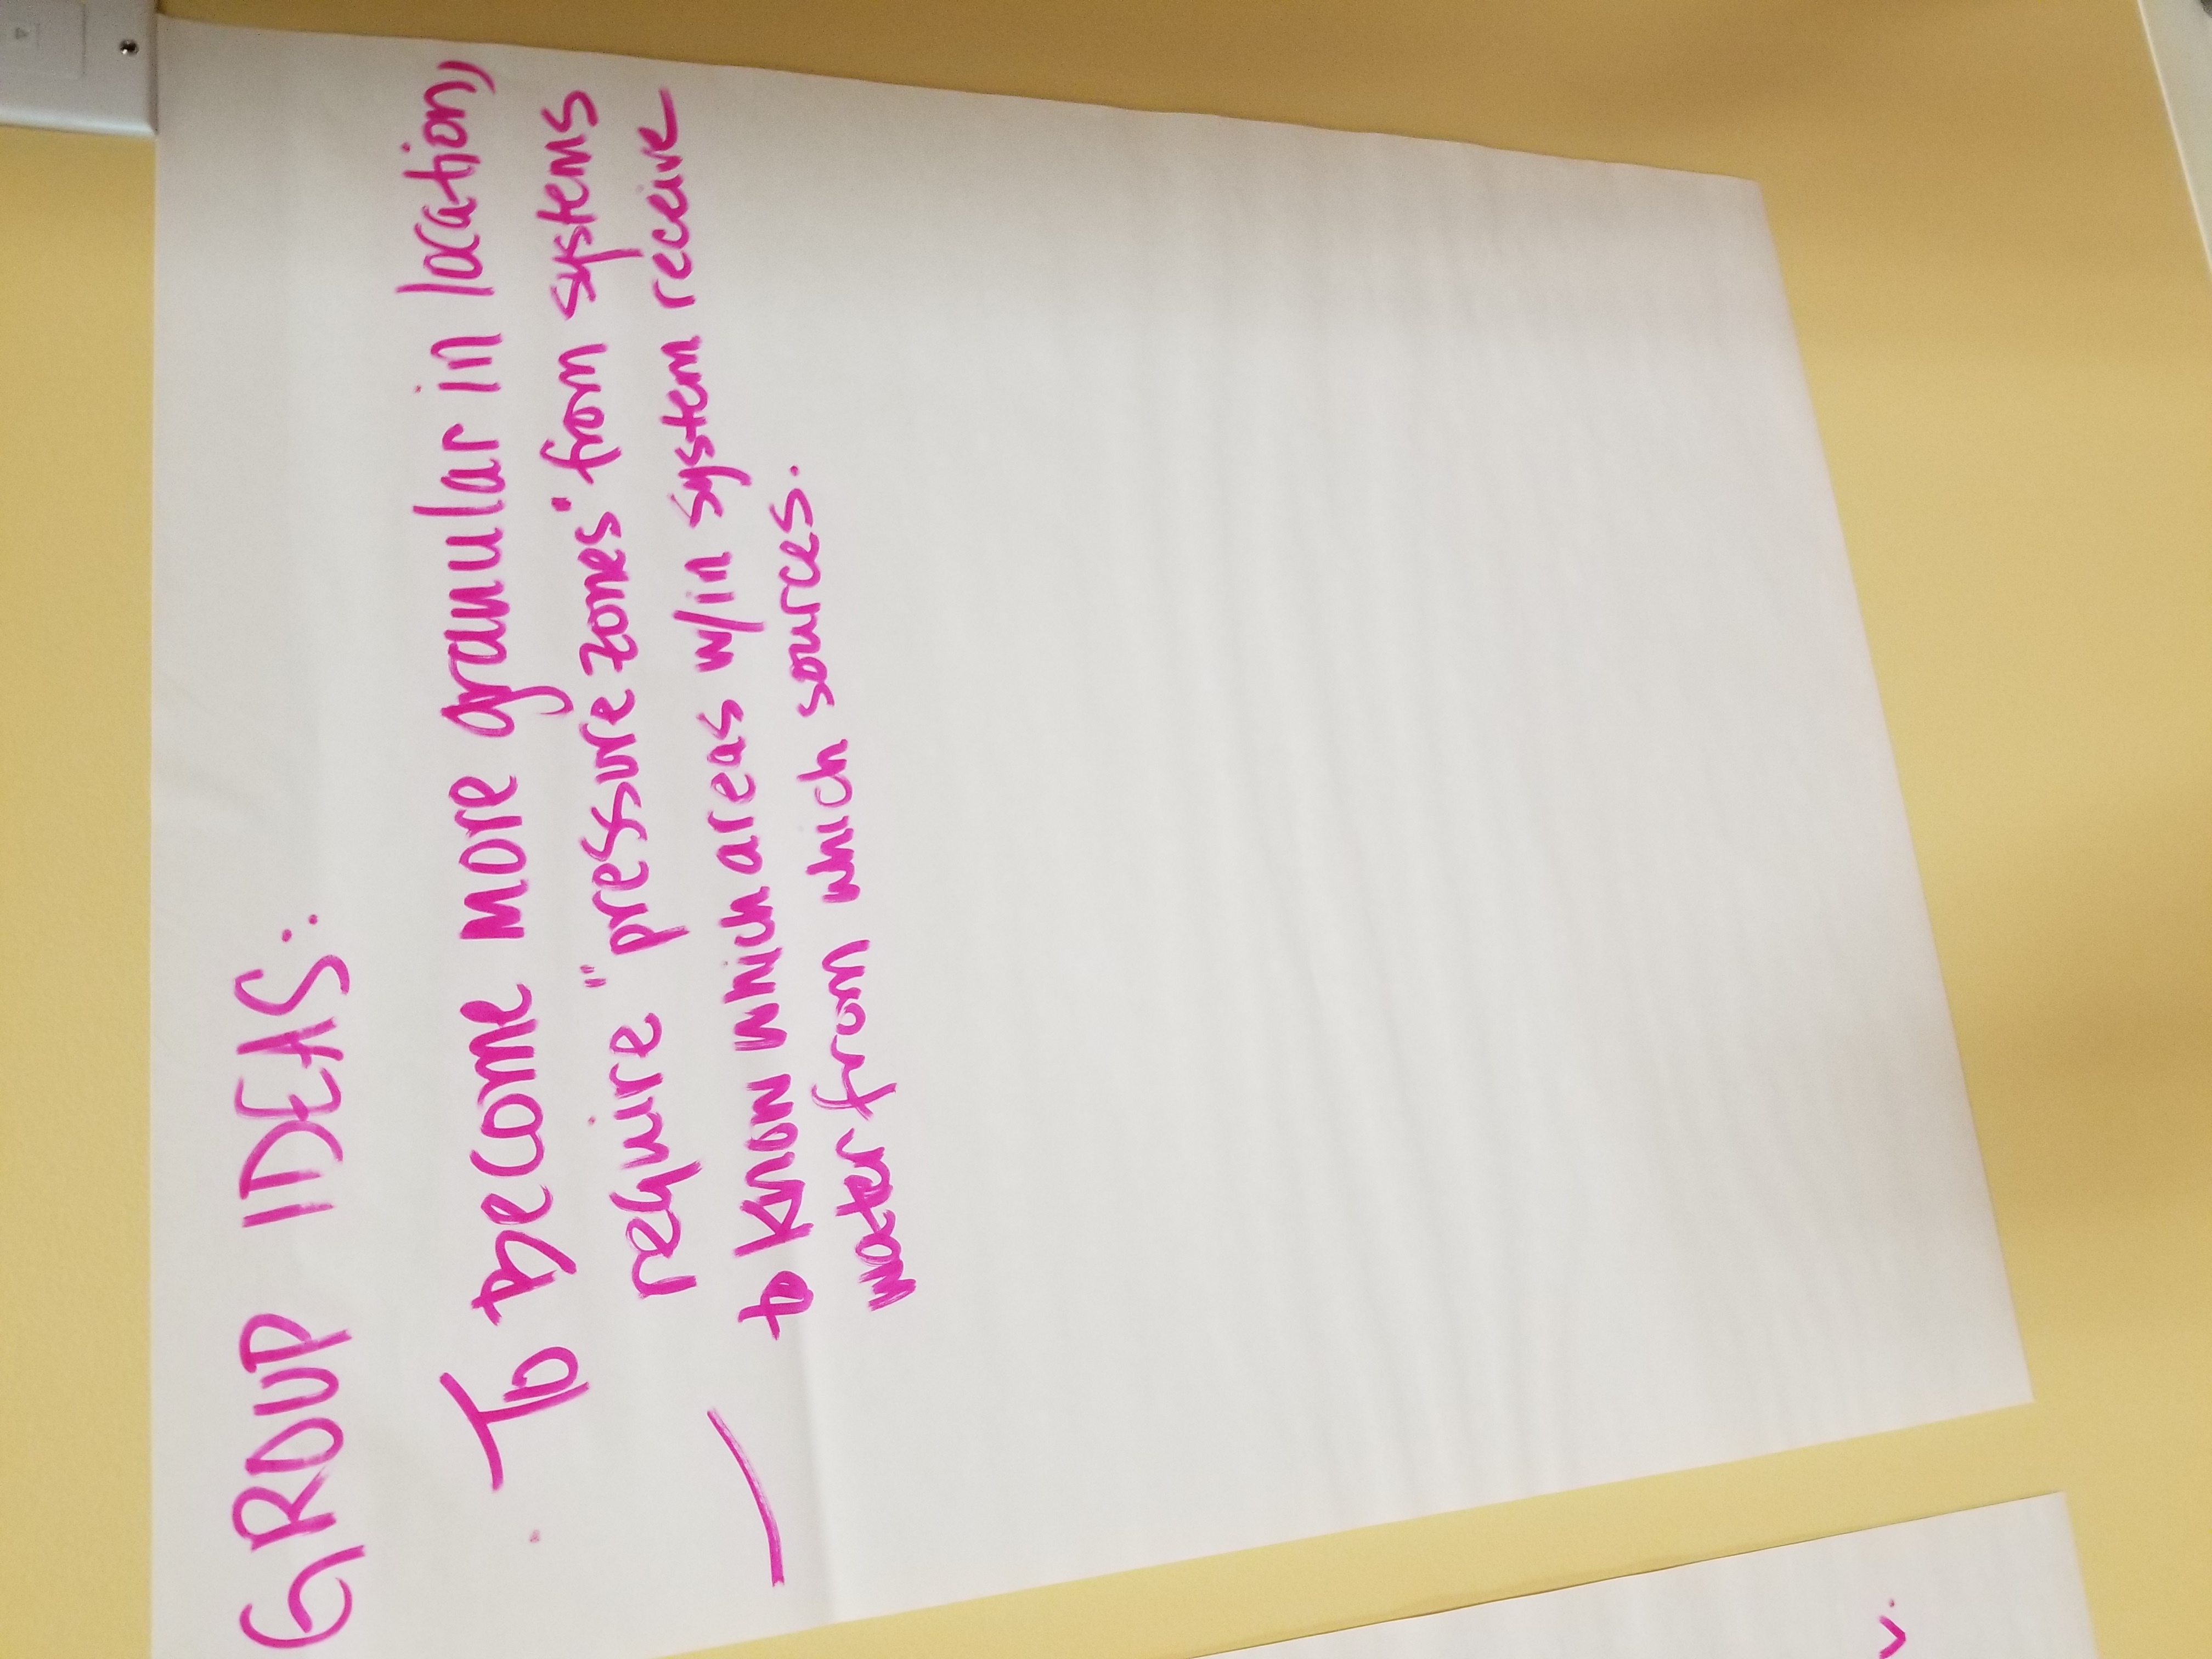 GROUP IDEAS:
· To Become more granular in location,
require "pressure zones" from systems
to know which areas w/in system receive
water from which sources.
v.